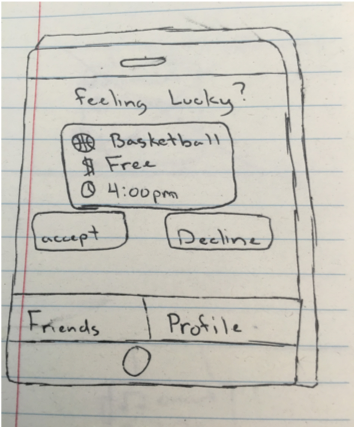 feeling Lucky?
Basketball
$ Free
4:00pm
accept
Decline
Friends
Profile